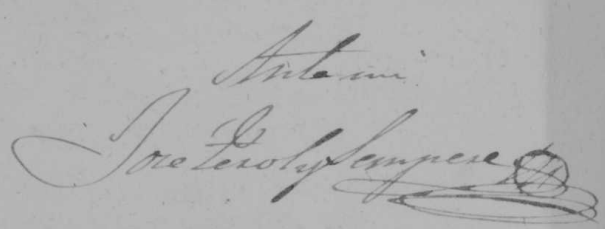 Ante mi
José Pérol y Sempere